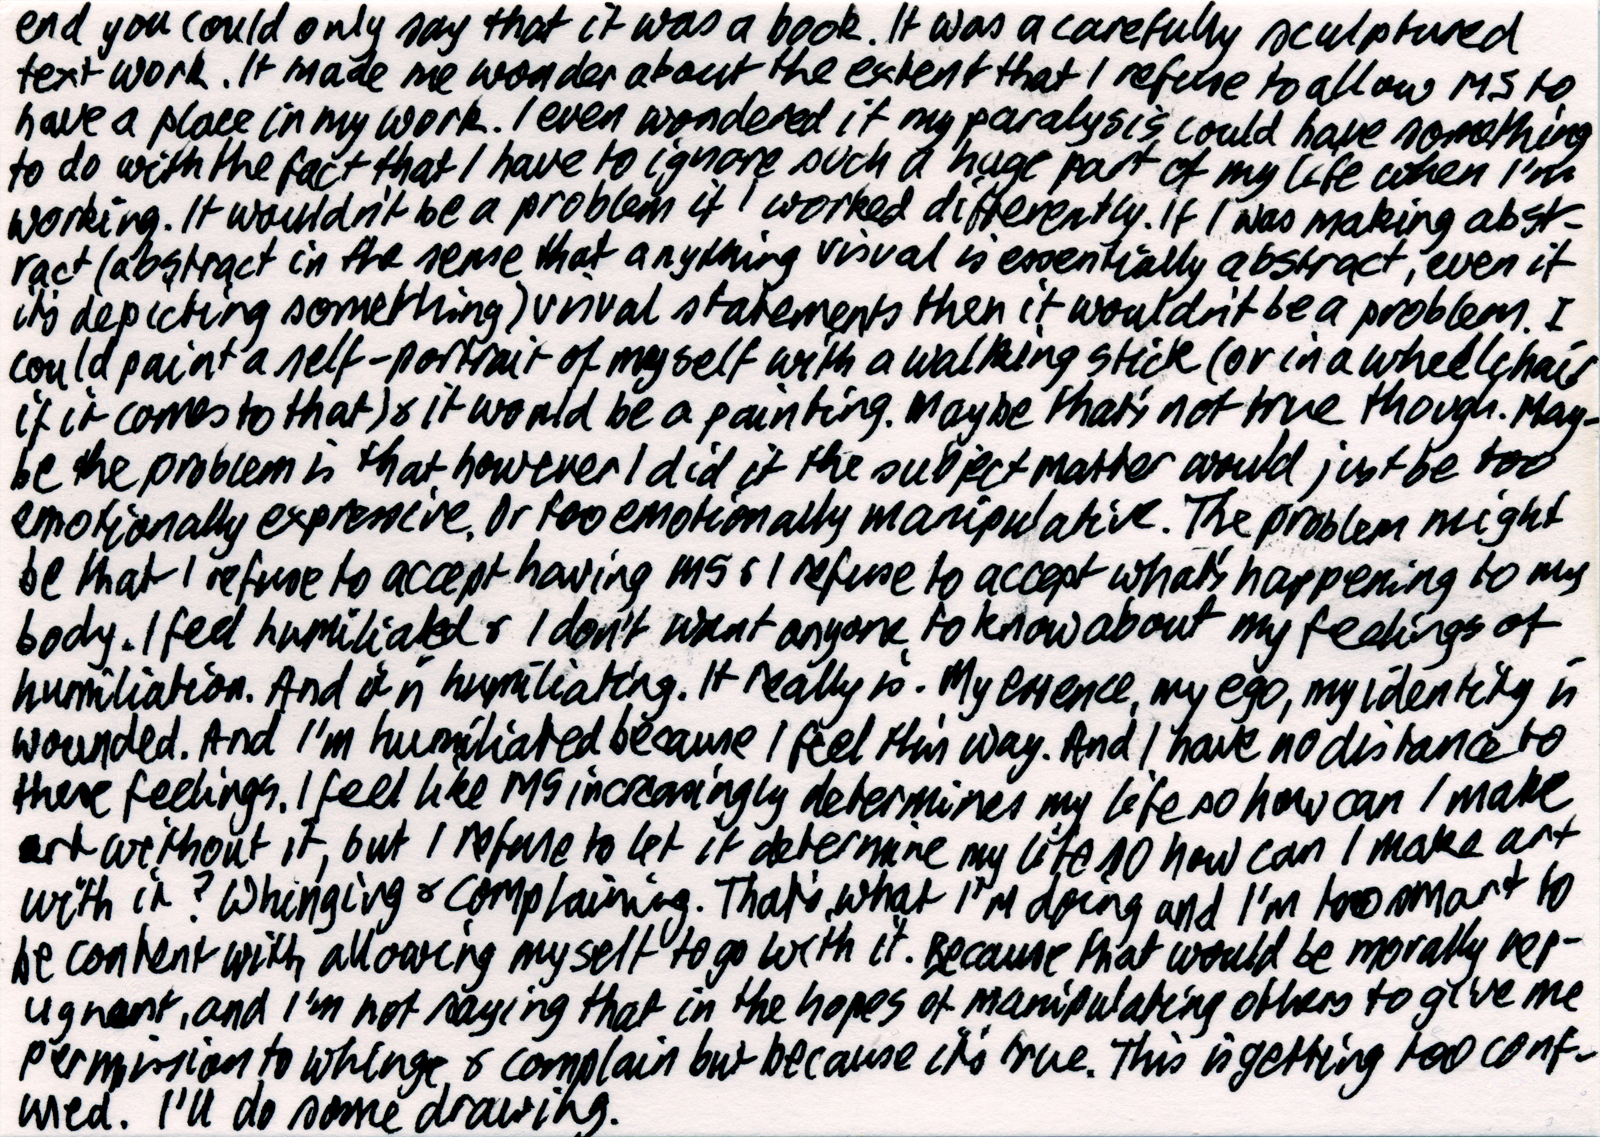 end you could only say that it was a book. It was a carefully sculptured
text work. It made me wonder about the extent that I refuse to allow MS to
have a place in my work. I even wondered if my paralysis could have something
to do with the fact that I have to ignore such a huge part of my life when I'm
working. It wouldn't be a problem if I worked differently. If I was making abst-
ract (abstract in the sense that anything visual is essentially abstract, even if
it's depicting something) visual statements then it wouldn't be a problem. I
could paint a self-portrait of myself with a walking stick (or in a wheelchair
if it comes to that) & it would be a painting. Maybe that's not true though. May-
be the problem is that however I did it the subject matter would just be too
emotionally expressive. Or too emotionally manipulative. The problem might
be that I refuse to accept having MS & I refuse to accept what's happening to my
body. I feel humiliated & I don't want anyone to know about my feelings of
humiliation. And it is humiliating. It really is. My essence, my ego, my identity is
wounded. And I'm humiliated because I feel this way. And I have no distance to
these feelings. I feel like MS increasingly determines my life so how can I make
art without it, but I refuse to let it determine my life so how can I make art
with it? Whinging & complaining. That's what I'm doing and I'm too smart to
be content with allowing myself to go with it. Because that would be morally rep-
ugnant, and I'm not saying that in the hopes of manipulating others to give me
permission to whinge & complain but because it's true. This is getting too conf-
used. I'll do some drawing.